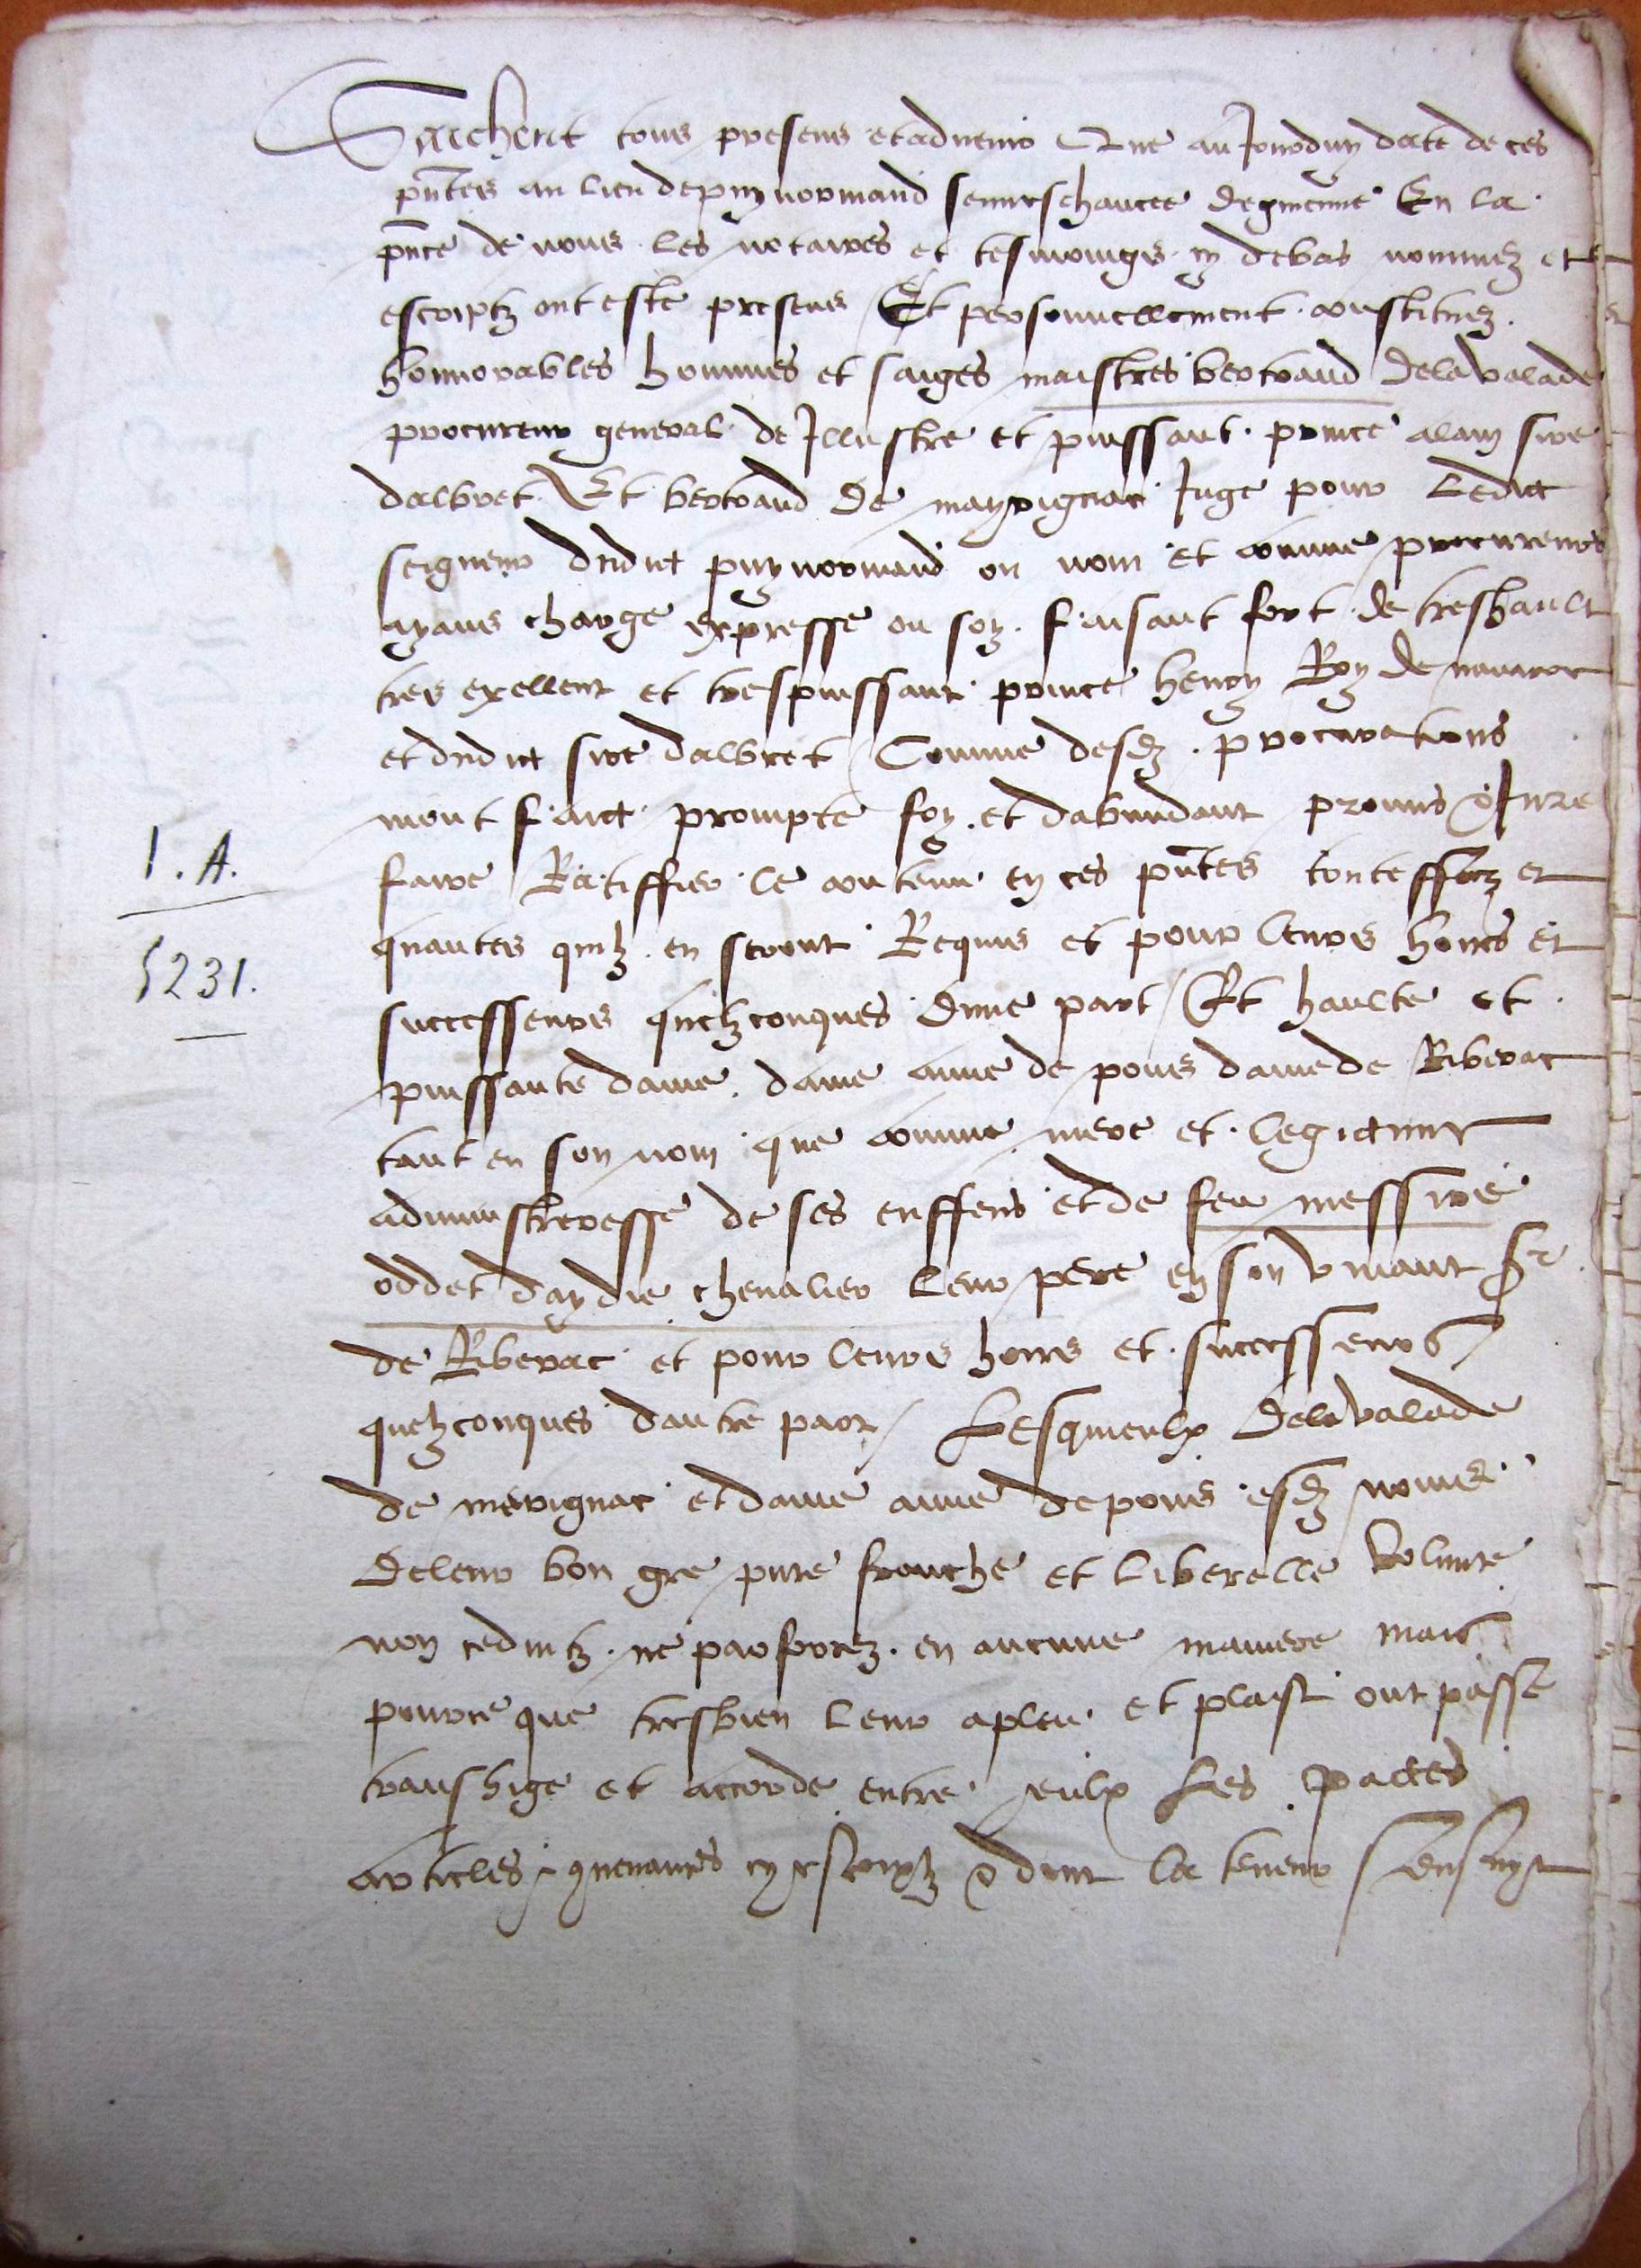 Saichent tous presens et advenir Que au Jourduy date de ces
pntes au lieu de puynormand seneschaucee de guienne En la
pnce de nous les notaires et tesmoings cy debas nommez et
escriptz ont este presens Et personnellement constituez
honnorables hommes et saiges maistres bertrand de la valade
procureur general de Illustre et puissant prince alain sire
dalbret Et bertrand de mayrignac Juge pour Ledict
seigneur dudict puynormand on nom et comme procureurs
ayans charge expresse ou soy faisant fort de treshault
tres exellent et trespuissant prince henry Roy de navarre
et dudict sire dalbret Comme desdz procurations
mont faict prompte foy et dabundant promis & Jure
faire Ratiffier le contenu en ces pntes toutesffoiz et
quantes quilz en seront Requis et pour leurs hoirs et
successeurs quelzconques dune part Et haulte et
puissante dame dame anne de pons dame de Riberac
tant en son nom que comme mere et legictime
administreresse de ses enffens et de feu messire
oddet daydie chevalier leur pere en son vivant sr
de Riberac et pour leurs hoirs et successeurs
quelzconques dautre part Lesquieulx de la valade
de merignac et dame anne de pons esdz noms
de leur bon gre pure franche et liberelle volunte
non seduitz ne parforcez en aucune maniere mais
pource que tresbien leur a pleu et plaist ont passe
transhige et accorde entre eulx Les pactes
articles & convenances cy escriptz & dont la teneur sensuyt
1. A.
5231.